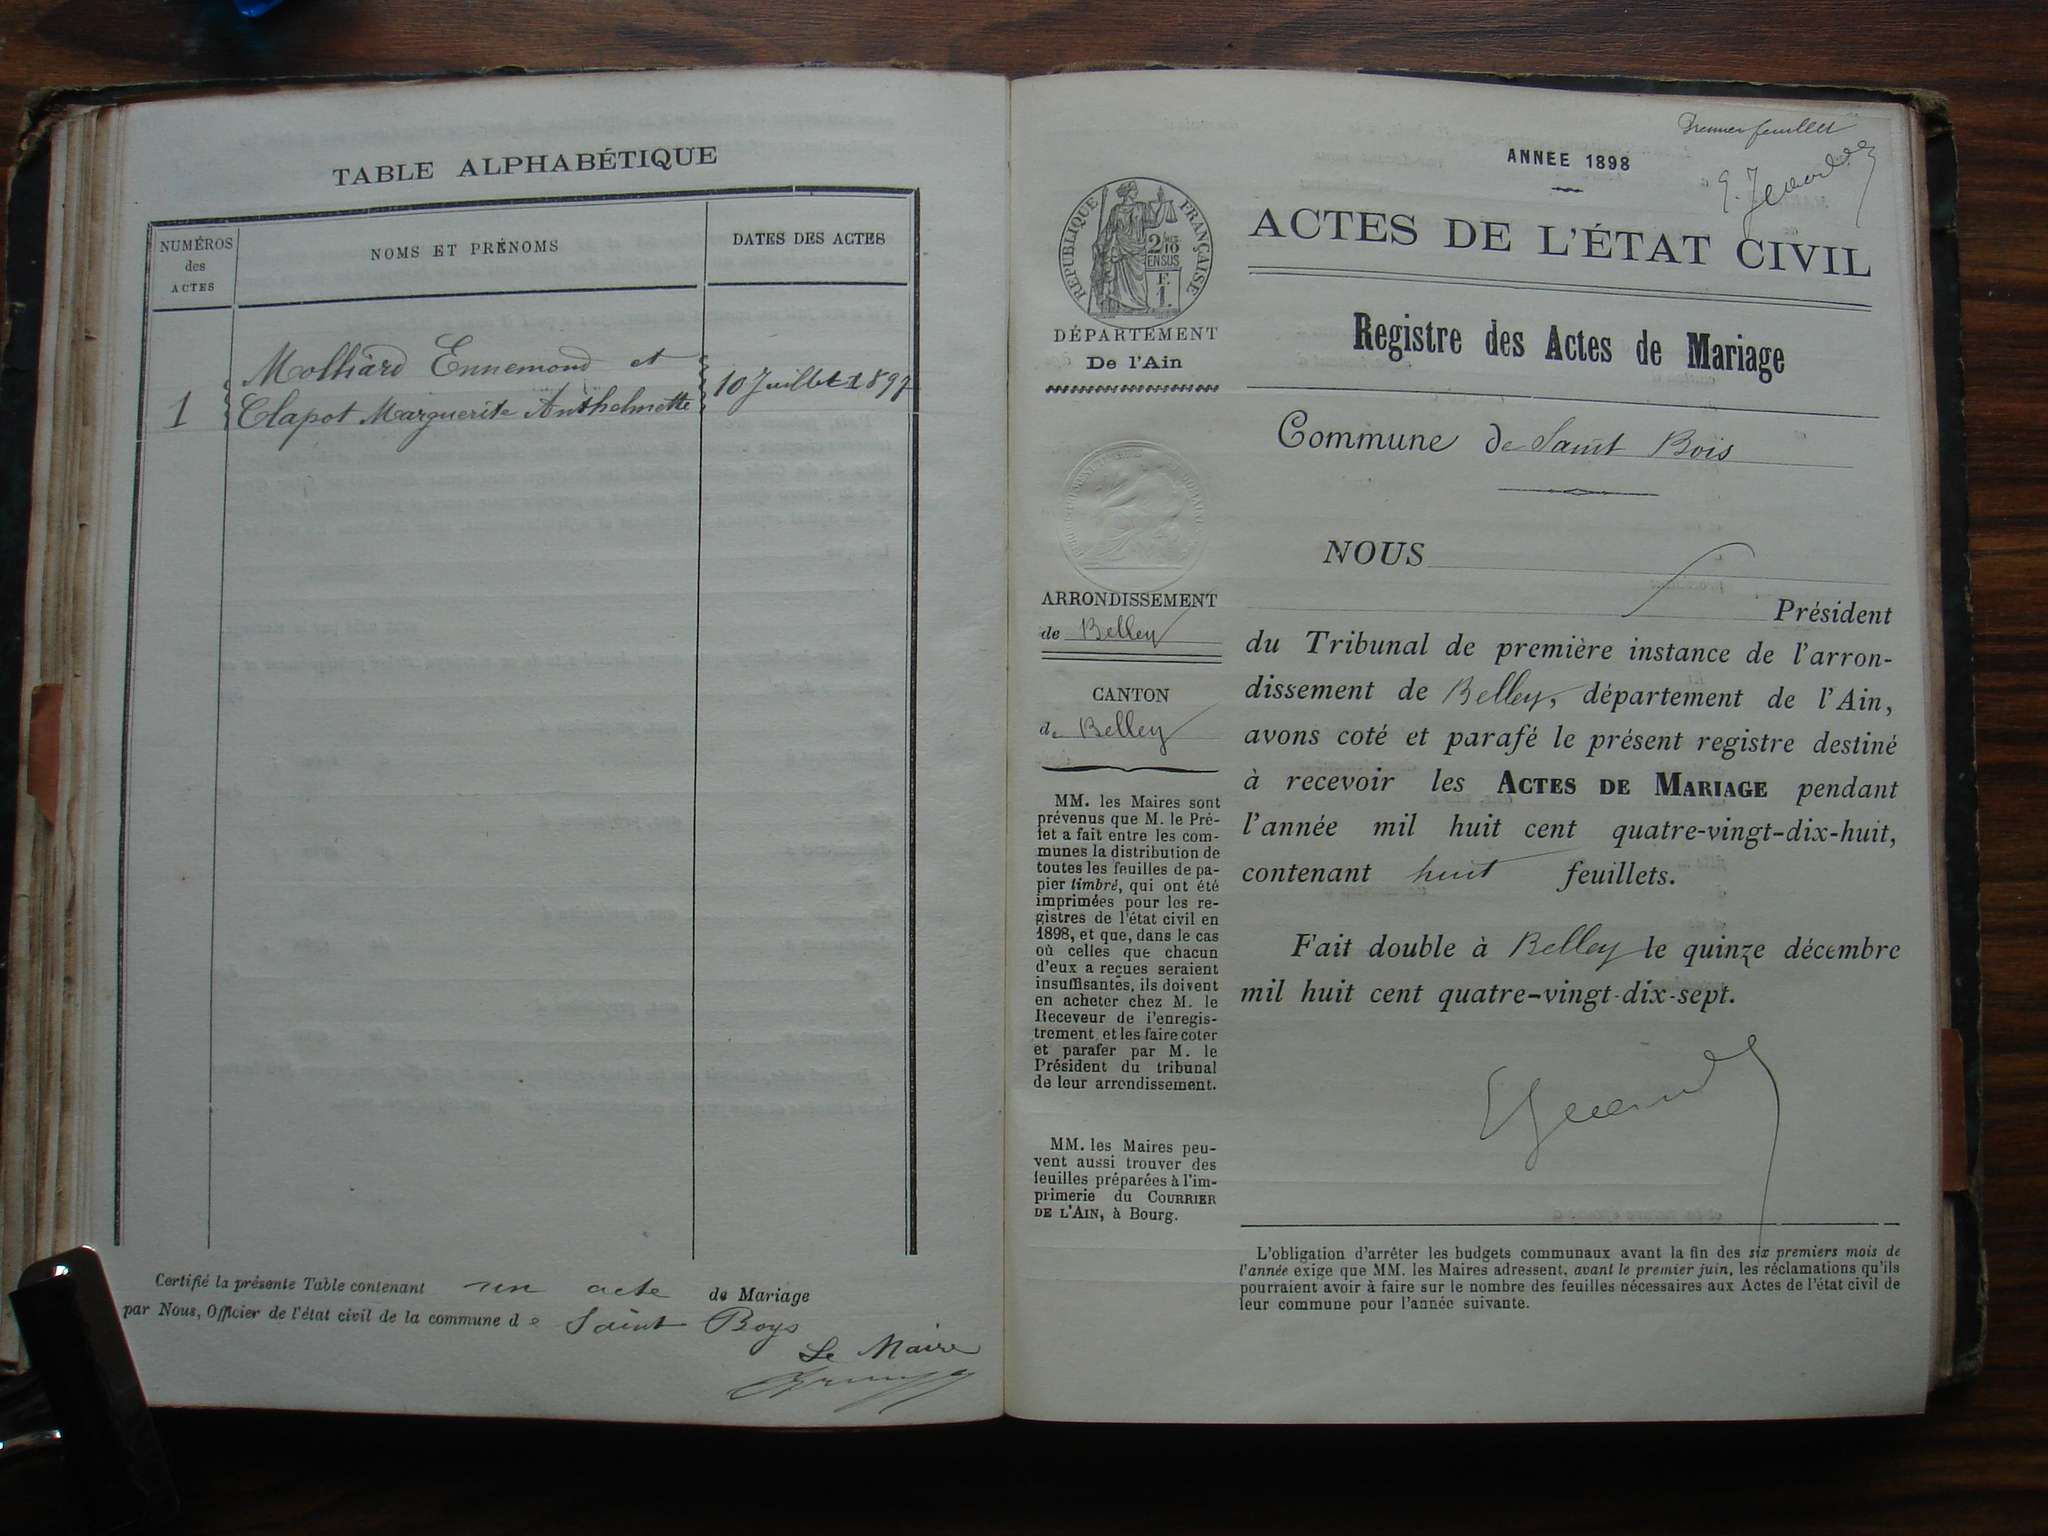 TABLE ALPHABÉTIQUE
NUMÉROS
des
ACTES
NOMS ET PRÉNOMS
DATES DES ACTES
1
Molliard Ennemond et
Clapot Marguerite Anthelmette
10 Juillet 1897
Certifié la présente Table contenant un acte de Mariage
par Nous, Officier de l'état civil de la commune de Saint Boys
Le Maire
Premier feuillet
ANNEE 1898
ACTES DE L'ÉTAT CIVIL
Registre des Actes de Mariage
Commune de Saint Bois
RÉPUBLIQUE FRANÇAISE
2/10
EN SUS
F.
1.
DÉPARTEMENT
De l'Ain
ARRONDISSEMENT
de Belley
CANTON
de Belley
MM. les Maires sont
prévenus que M. le Pré-
fet a fait entre les com-
munes la distribution de
toutes les feuilles de pa-
pier timbré, qui ont été
imprimées pour les re-
gistres de l'état civil en
1898, et que, dans le cas
où celles que chacun
d'eux a reçues seraient
insuffisantes, ils doivent
en acheter chez M. le
Receveur de l'enregis-
trement et les faire coter
et parafer par M. le
Président du tribunal
de leur arrondissement.
MM. les Maires peu-
vent aussi trouver des
feuilles préparées à l'im-
primerie du COURRIER
DE L'AIN, à Bourg.
NOUS
Président
du Tribunal de première instance de l'arron-
dissement de Belley, département de l'Ain,
avons coté et parafé le présent registre destiné
à recevoir les ACTES DE MARIAGE pendant
l'année mil huit cent quatre-vingt-dix-huit,
contenant huit feuillets.
Fait double à Belley le quinze décembre
mil huit cent quatre-vingt-dix-sept.
L'obligation d'arrêter les budgets communaux avant la fin des six premiers mois de
l'année exige que MM. les Maires adressent, avant le premier juin, les réclamations qu'ils
pourraient avoir à faire sur le nombre des feuilles nécessaires aux Actes de l'état civil de
leur commune pour l'année suivante.